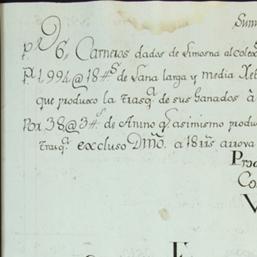 Sum
pr. 6, Carneros dados de Limosna al coleg
Pr. 1.994@18 ℔s. de Lana larga, y media Xet
que produxo la trasq.a de sus Ganados à
Por 38@3 ℔s. de Anino q.e asimismo produ
trasq.a excluso Dmo. a 18 rrs arrova
Pro
Co
V